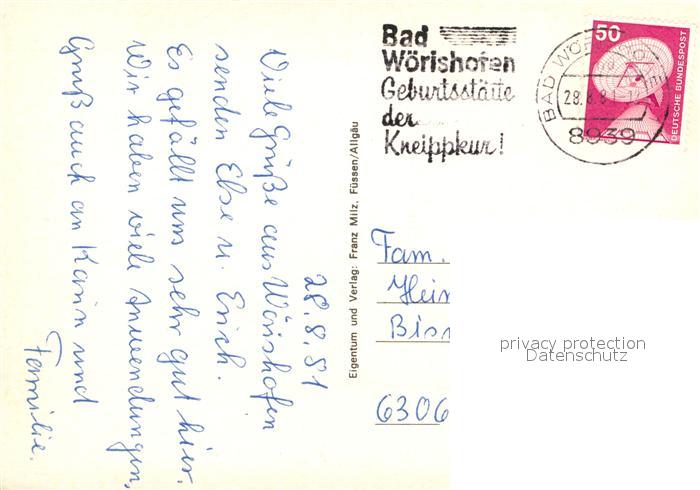 28.8.81
Viele Grüße aus Wörishofen
senden Else u. Erich.
Es gefällt uns sehr gut hier.
Wir haben viele Anwendungen,
Gruß auch an Karin und
Familie.
Eigentum und Verlag: Franz Milz, Füssen/Allgäu
Bad
Wörishofen
Geburtsstätte
der
Kneippkur!
BAD WÖR
28.8.81
8939
50
DEUTSCHE BUNDESPOST
Fam.
Hein
Biss
6306
privacy protection
Datenschutz